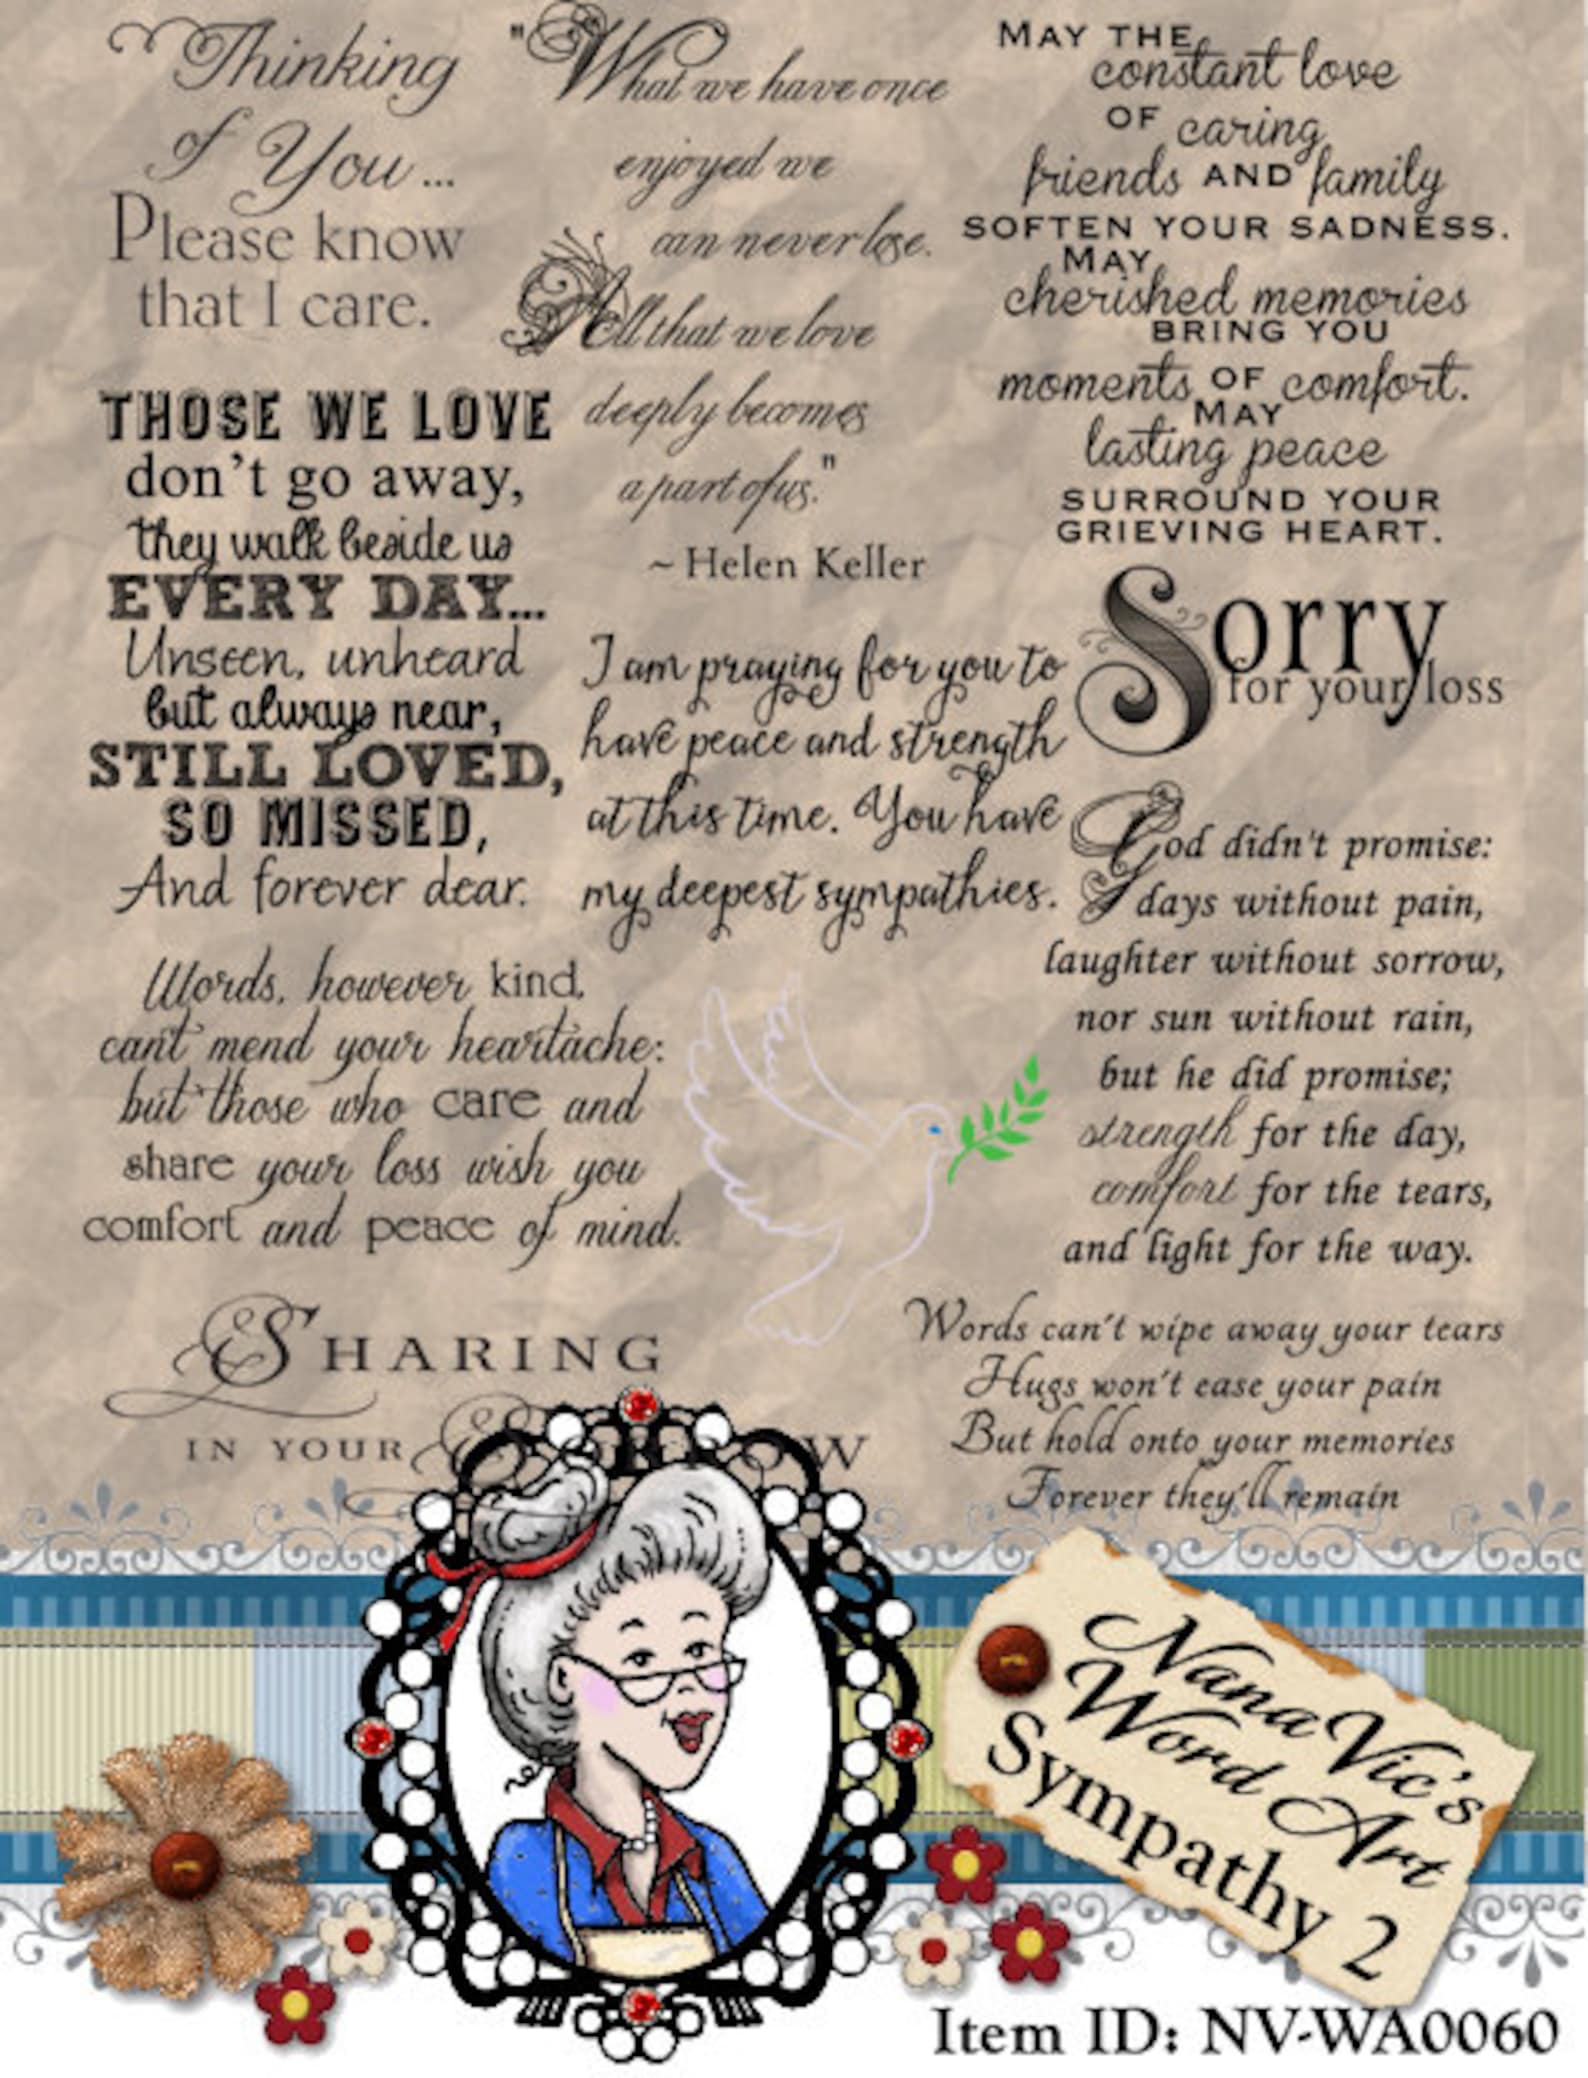 Thinking
of You...
Please know
that I care.
"What we have once
enjoyed we
can never lose.
All that we love
deeply becomes
a part of us."
~Helen Keller
MAY THE
constant love
OF caring
friends AND family
SOFTEN YOUR SADNESS.
MAY
cherished memories
BRING YOU
moments OF comfort.
MAY
lasting peace
SURROUND YOUR
GRIEVING HEART.
THOSE WE LOVE
don't go away,
they walk beside us
EVERY DAY...
Unseen, unheard
but always near,
STILL LOVED,
SO MISSED,
And forever dear.
I am praying for you to
have peace and strength
at this time. You have
my deepest sympathies.
Sorry
for your loss
God didn't promise:
days without pain,
laughter without sorrow,
nor sun without rain,
but he did promise;
strength for the day,
comfort for the tears,
and light for the way.
Words, however kind,
can't mend your heartache:
but those who care and
share your loss wish you
comfort and peace of mind.
SHARING
IN YOUR
Words can't wipe away your tears
Hugs won't ease your pain
But hold onto your memories
Forever they'll remain
NanaVic's
Word Art
Sympathy 2
Item ID: NV-WA0060